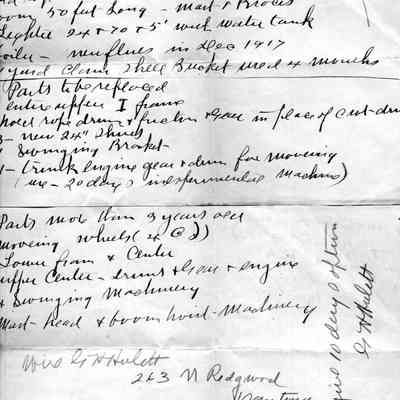 Boom 50 feet long - mast & Braces
Lighter 24 x 70 x 5' with water tank
Boiler - new flues in Dec 1917
yard Clam Shell Bucket used 4 months
Parts to be replaced
center upper I frame
wheel rope drum & friction & gear in place of cut-drum
3 - new 24" Shivs
" Swinging Bracket
1 - trunk Engine gear & drum for moveing
(use - 20 days inexspermental machine)
Parts mor than 3 years old
moveing wheels (4 @ )
Lower fram & Center
upper Center - drums & Gear & engine
& Swinging Machinery
Mast - head & boom hoist - Machinery
Wire G H Hulett
2 & 3 N Redgwod
give 10 days option
G H Hulett